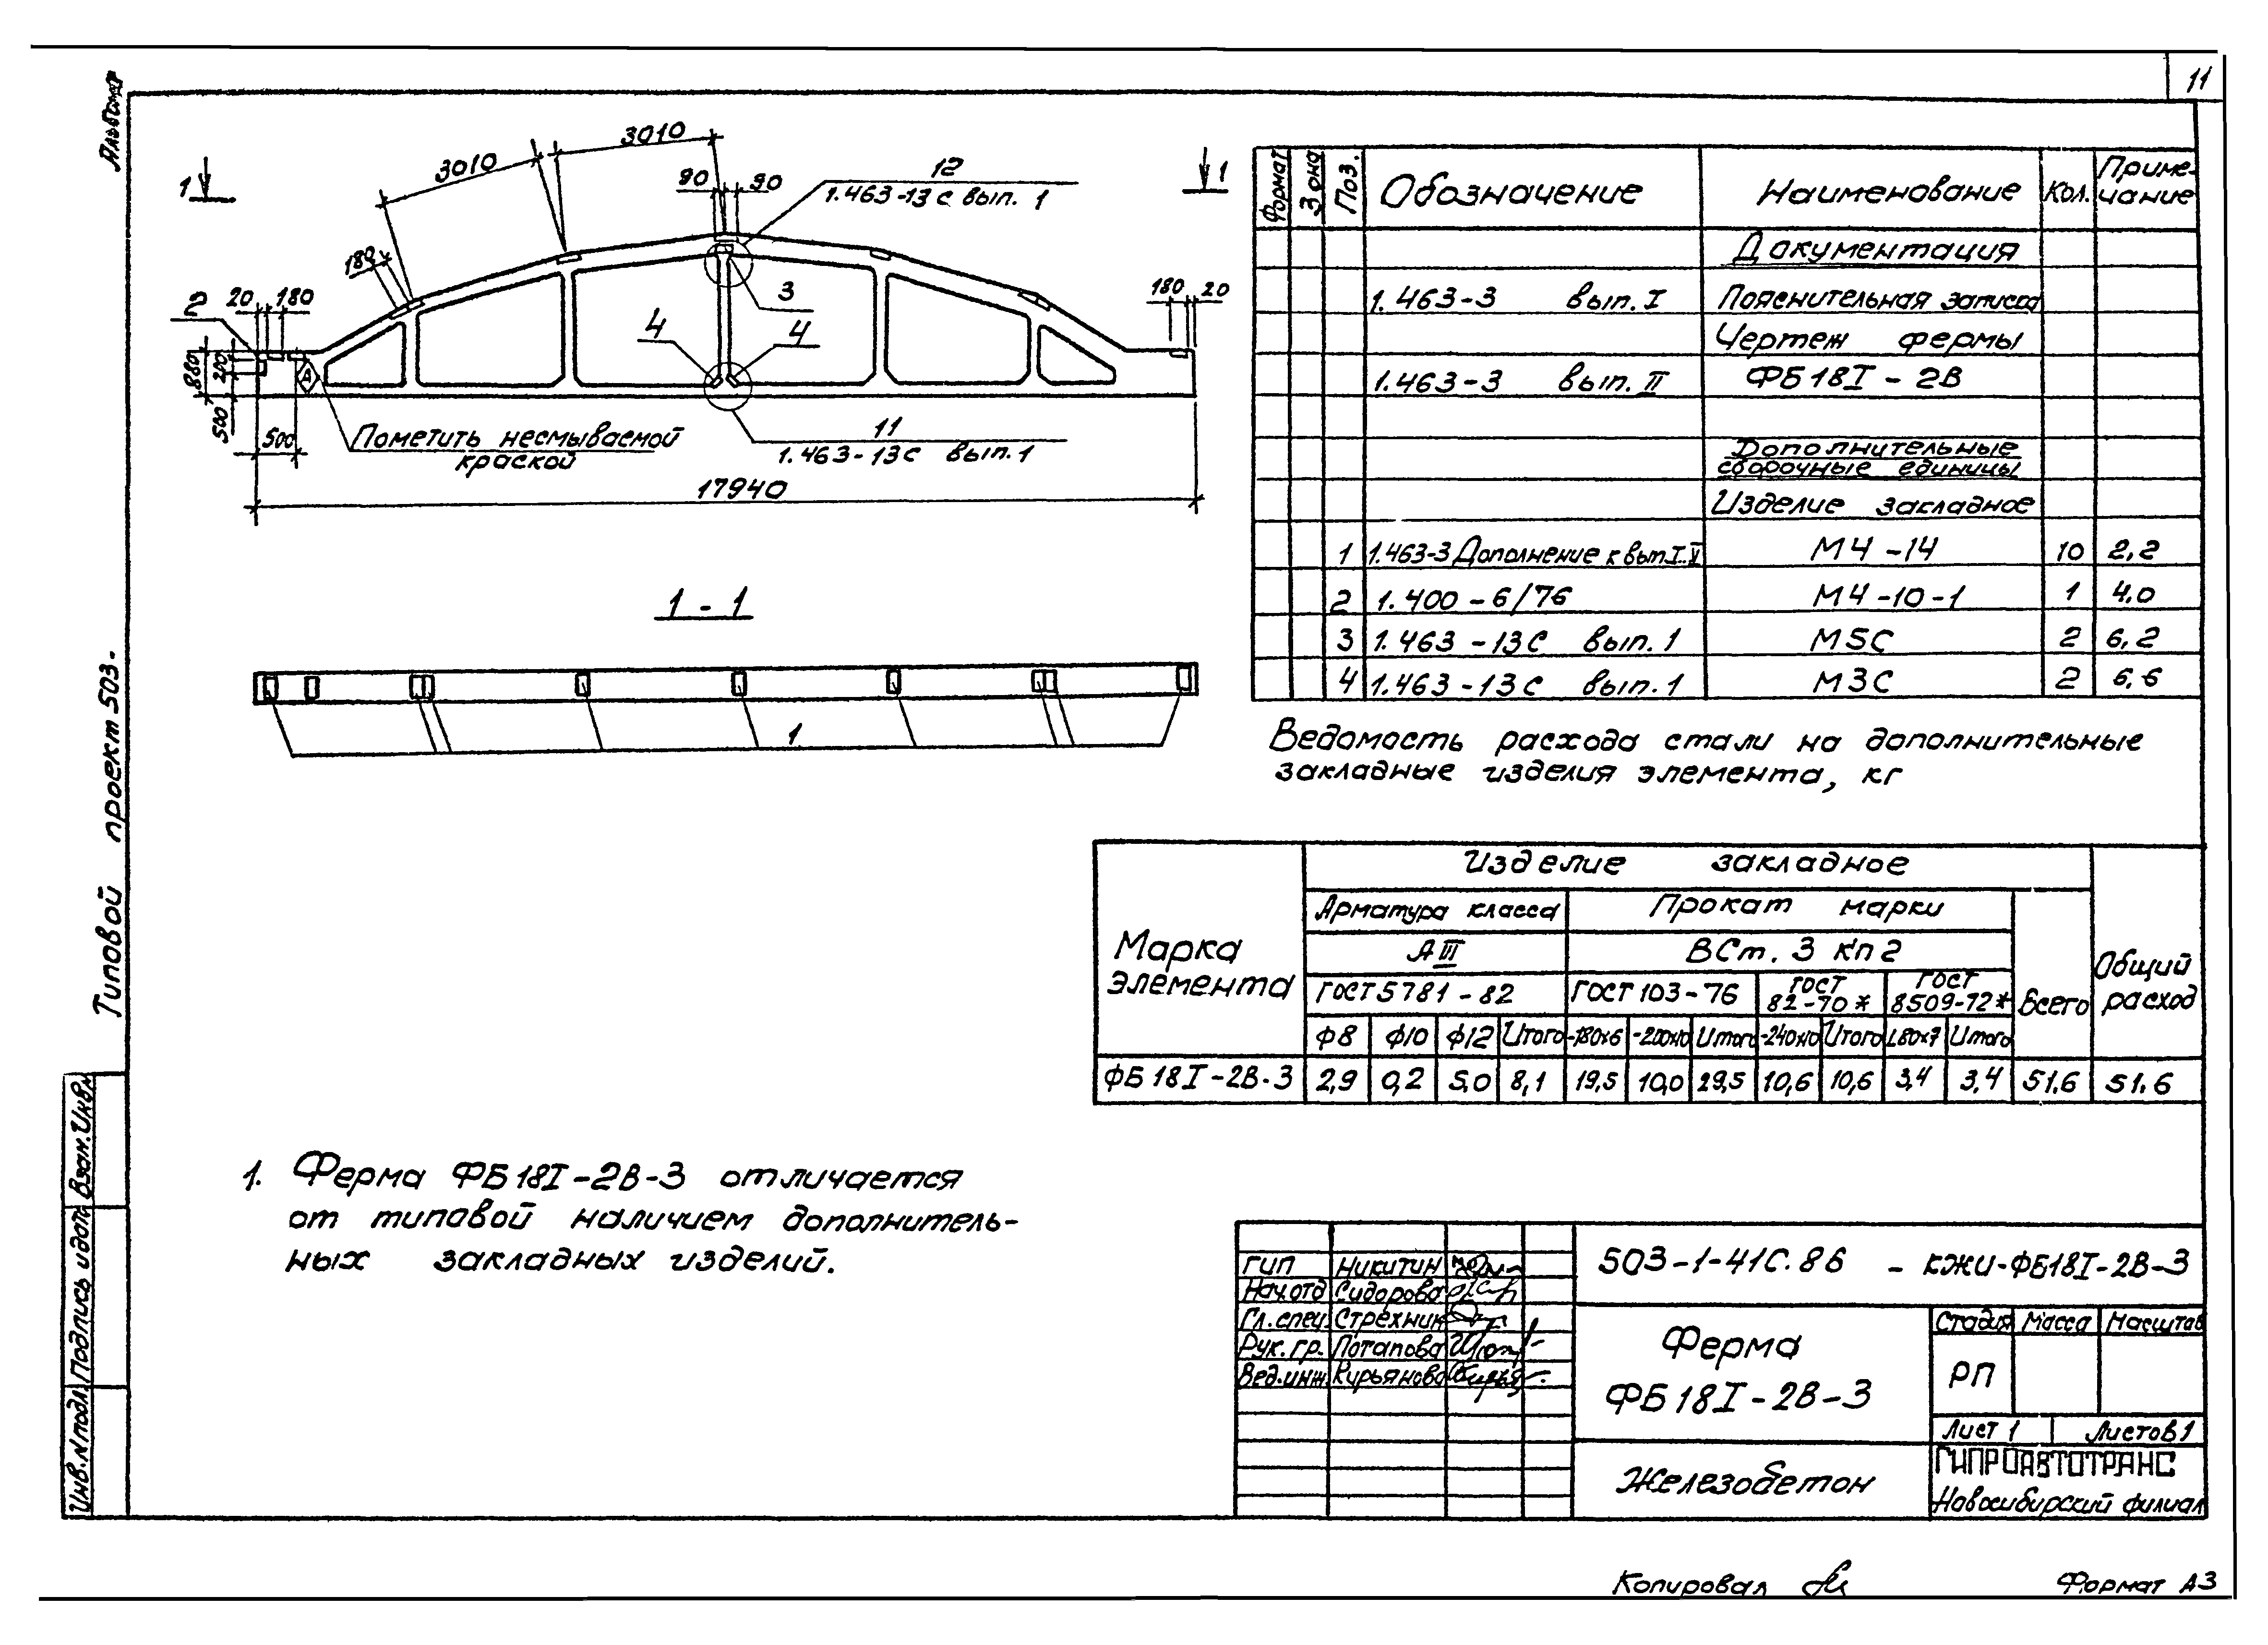 11
Альбом
Типовой проект 503-
3010
3010
1
1
90
90
12
1.463-13с вып. 1
180
2
20
180
3
180
20
4
4
880
200
500
А
500
Пометить несмываемой
краской
11
1.463-13с вып. 1
17940
1 - 1
1
Формат Зона Поз. Обозначение Наименование Кол. Приме-
чание
Документация
1.463-3 вып. I Пояснительная записка
Чертеж фермы
1.463-3 вып. II ФБ18I-2В
Дополнительные
сборочные единицы
Изделие закладное
1 1.463-3 Дополнение к вып.I..V М4-14 10 2,2
2 1.400-6/76 М4-10-1 1 4,0
3 1.463-13С вып. 1 М5С 2 6,2
4 1.463-13с вып. 1 М3С 2 6,6
Ведомость расхода стали на дополнительные
закладные изделия элемента, кг
Марка
элемента
Изделие закладное
Общий
расход
Арматура класса Прокат марки
Всего
АIII ВСт. 3 кп 2
ГОСТ 5781-82 ГОСТ 103-76 ГОСТ
82-70* ГОСТ
8509-72*
Ф8 Ф10 Ф12 Итого -180х6 -200х10 Итого -240х10 Итого L80х7 Итого
ФБ18I-2В-3 2,9 0,2 5,0 8,1 19,5 10,0 29,5 10,6 10,6 3,4 3,4 51,6 51,6
1. Ферма ФБ18I-2В-3 отличается
от типавой наличием дополнитель-
ных закладных изделий.
Взам. Инв.
Подпись и дата
Инв. N подл.
ГИП Никитин
Нач.отд Сидорова
Гл.спец. Стрехнин
Рук.гр. Потапова
Вед.инж. Кирьянова
503-1-41С.86 - КЖИ-ФБ18I-2В-3
Ферма
ФБ18I-2В-3
Стадия Масса Масштаб
РП
Лист 1 Листов 1
Железобетон
ГИПРОАВТОТРАНС
Новосибирский филиал
Копировал
Формат А3